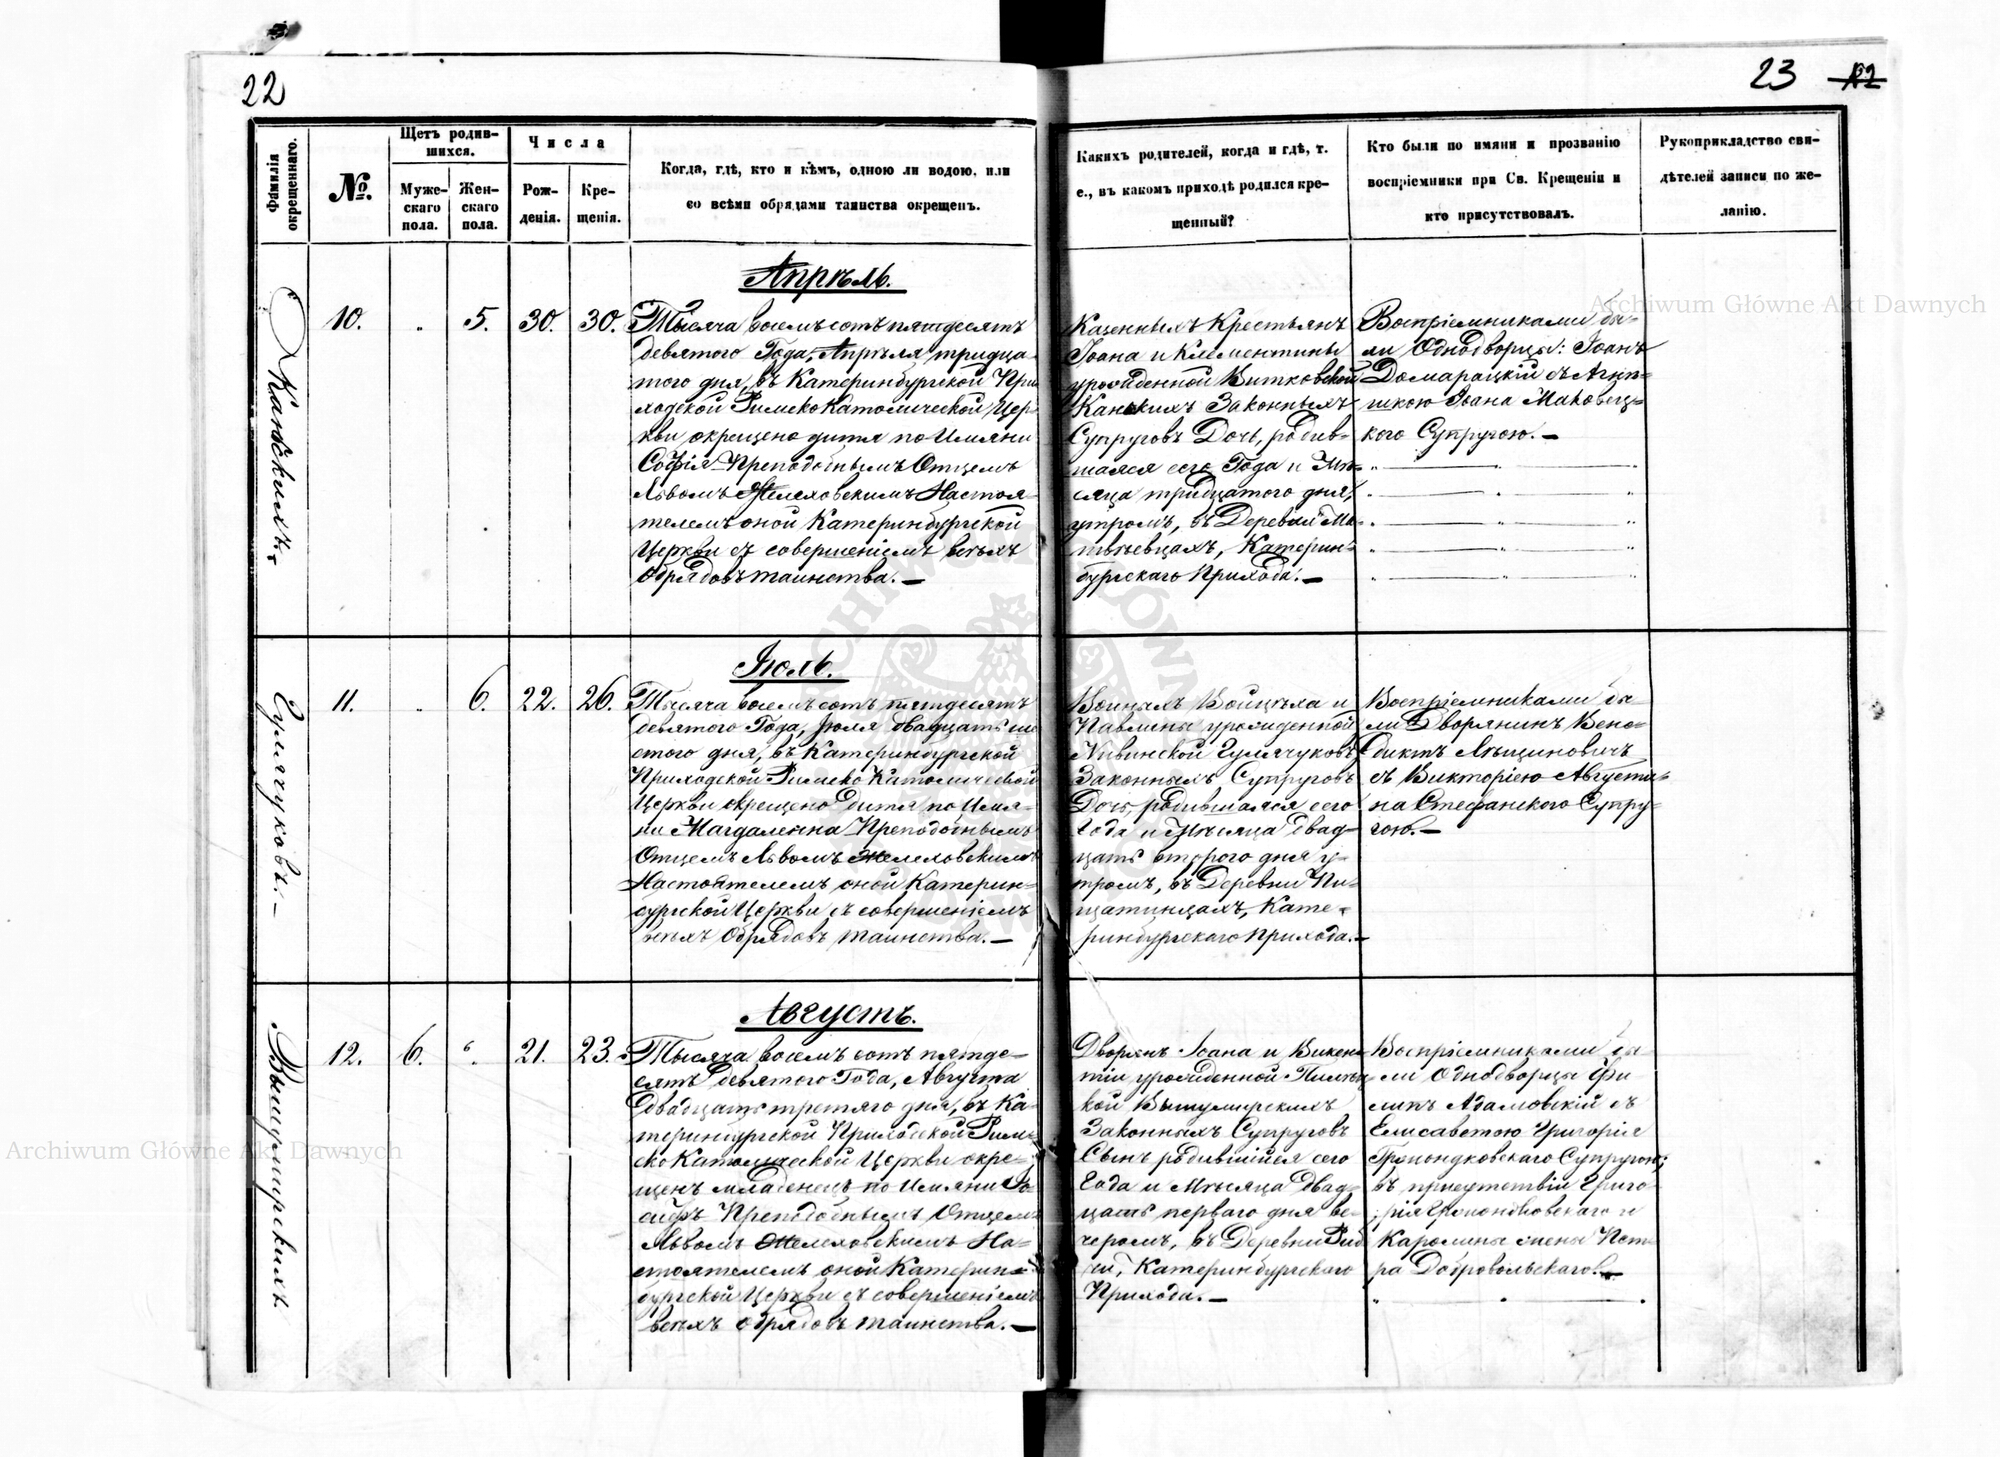 22
23
Фамилія окрещеннаго.
№.
Щетъ родив-
шихся.
Муже-
скаго
пола.
Жен-
скаго
пола.
Числа
Рож-
денія.
Кре-
щенія.
Когда, гдѣ, кто и кѣмъ, одною ли водою, или
со всѣми обрядами таинства окрещенъ.
Какихъ родителей, когда и гдѣ, т.
е., въ какомъ приходѣ родился кре-
щенный?
Кто были по имяни и прозванію
воспріемники при Св. Крещеніи и
кто присутствовалъ.
Рукоприкладство сви-
дѣтелей записи по же-
ланію.
Канскихъ.
10.
5.
30.
30.
Апрѣль.
Тысяча восемъсотъ пятдесятъ
девятого Года, Апрѣля тридца-
того дня, въ Катеринбургской При-
ходской Римско Католической Цер-
кви окрещено дитя по Имяни
Софія Преподобнымъ Отцемъ
Львомъ Желеховскимъ Настоя-
телемъ оной Катеринбургской
Церкви съ совершеніемъ всѣхъ
Обрядовъ таинства.
Казенныхъ Крестьянъ
Іоана и Клементины
урожденной Витковской
Канскихъ Законныхъ
Супруговъ Дочь, родив-
шаяся сего Года и Мѣ-
сяца тридцатого дня,
утромъ, въ Деревни Ма-
твѣевцахъ, Катерин-
бургскаго Прихода.
Воспріемниками бы-
ли Однодворцы: Іоанъ
Домарацкій съ Агнѣ-
шкою Іоана Маковец-
кого Супругою.
Гулячуковъ.
11.
6.
22.
26.
Іюль.
Тысяча восемъсотъ пятдесятъ
девятого Года, Іюля двадцать ше-
стого дня, въ Катеринбургской
Приходской Римско Католической
Церкви окрещено Дитя по Имя-
ни Магдаленна Преподобнымъ
Отцемъ Львомъ Желеховскимъ
Настоятелемъ оной Катерин-
бургской Церкви съ совершеніемъ
всѣхъ Обрядовъ таинства.
Войцѣха и
Павлины урожденной
Гулячуковъ
Законныхъ Супруговъ
Дочь, родившаяся сего
Года и Мѣсяца двад-
цать второго дня у-
тромъ, въ Деревни Пи-
щатинцахъ, Кате-
ринбургскаго Прихода.
Воспріемниками бы-
ли Дворянинъ Бене-
диктъ Лѣщиновичъ
съ Викторіею Августи-
на Стефанского Супру-
гою.
12.
6.
21.
23.
Августъ.
Тысяча восемъ сотъ пятде-
сятъ девятого Года, Августа
двадцать третяго дня, въ Ка-
теринбургской Приходской Рим-
ско Католической Церкви окре-
щенъ младенецъ по Имяни Іо-
сифъ Преподобнымъ Отцемъ
Львомъ Желеховскимъ На-
стоятелемъ оной Катерин-
бургской Церкви съ совершеніемъ
всѣхъ обрядовъ таинства.
Дворянъ Іоана и Викен-
тіи урожденной
Законныхъ Супруговъ
Сынъ родившійся сего
Года и Мѣсяца двад-
цать перваго дня ве-
черомъ, въ Деревни
Катеринбургскаго
Прихода.
Воспріемниками бы-
ли Однодворцы Фи-
липъ Адамовскій съ
Елисаветою Григорія
Супругою;
въ присутствіи Григо-
рія и
Каролины жены Пет-
ра Добровольскаго.
Archiwum Główne Akt Dawnych
Archiwum Główne Akt Dawnych